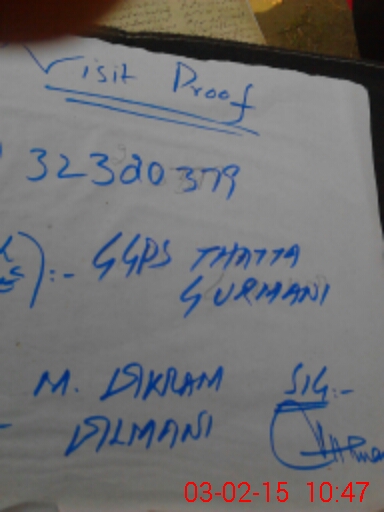 Visit Proof
32320379
):- GGPS THATTA
GURMANI
M. AKRAM SIG:-
- ALMANI
03-02-15 10:47